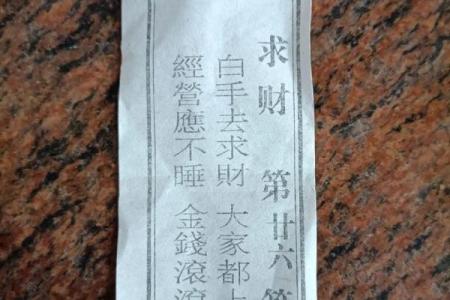 求财 第廿六
白手去求財 大家都
經營應不睡 金錢滾滾